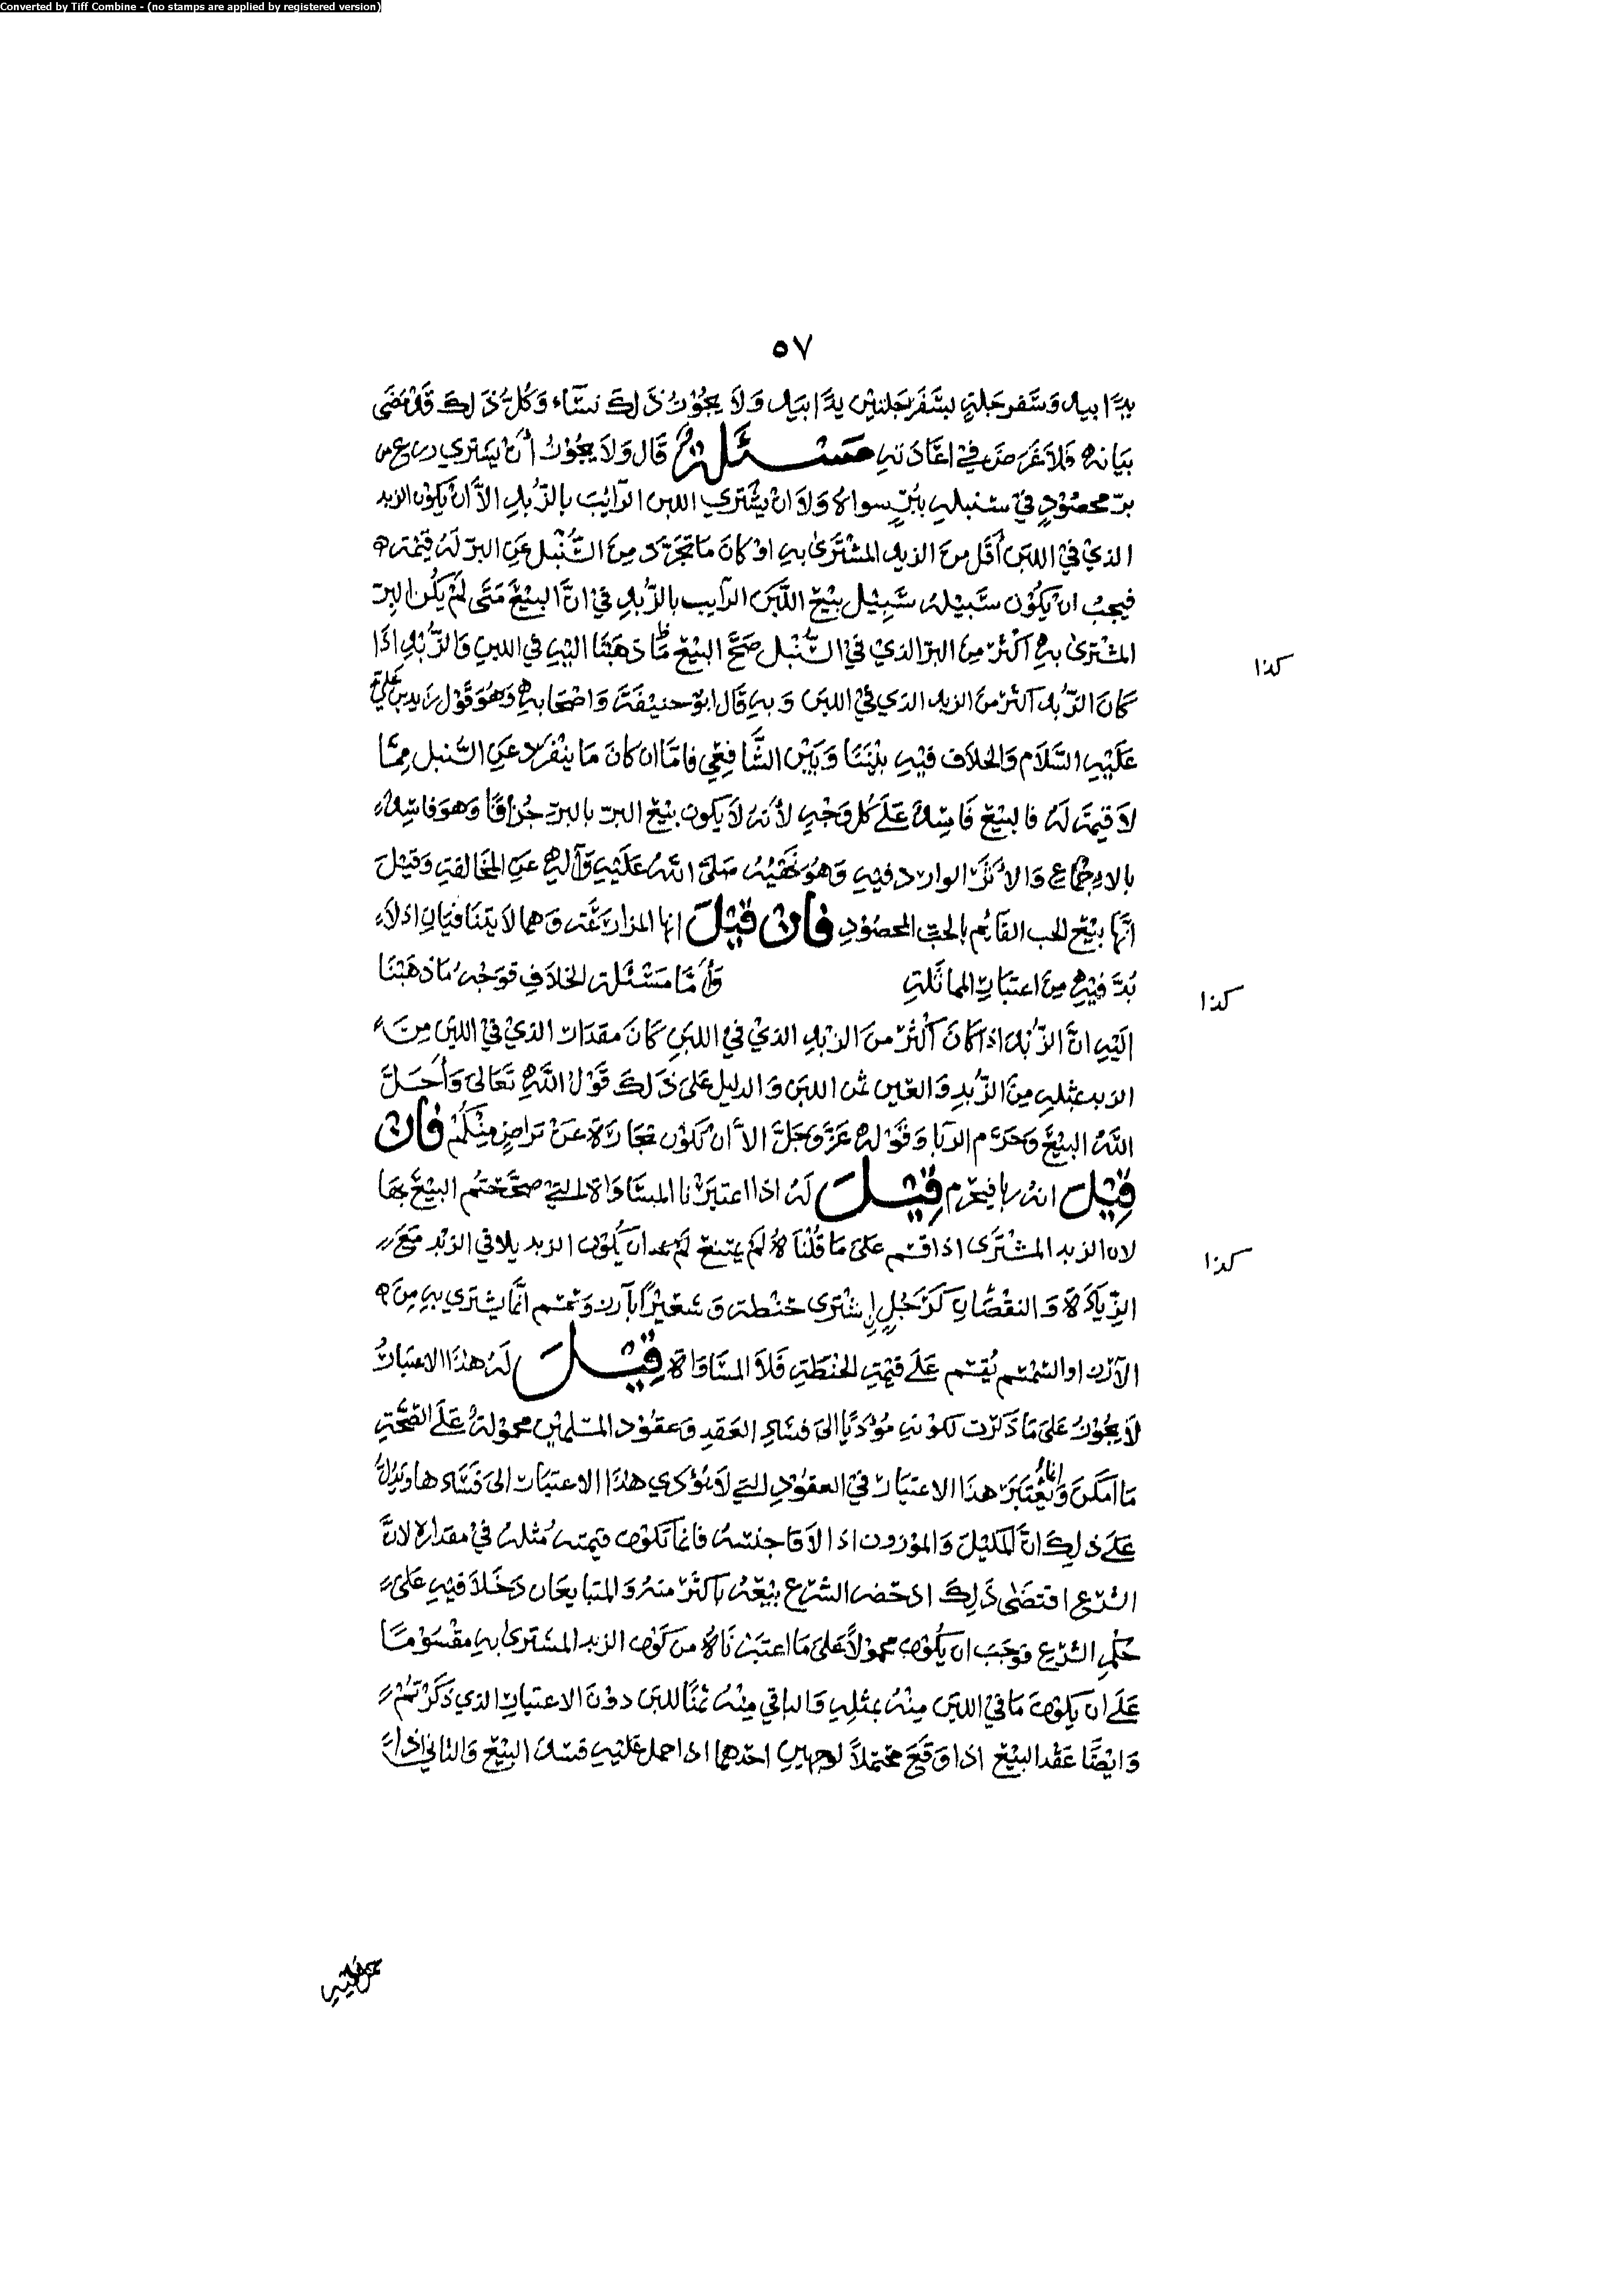 Converted by Tiff Combine - (no stamps are applied by registered version)
٥٧
يدًا بيد وسَفرجَلةٍ بسَفَرجَلتَيْن يدًا بيَدٍ وَلَا يجُوْزُ ذَلِكَ نسَآء وَكُلُّ ذَلِكَ قَدْ مَضَى
بيَانه فلَا غرَضَ في اعَادَتهِ مَسْئلة قَال وَلَا يجُوْزُ أنْ يشتري زرع من
برّ محصُوْدٍ فيْ سنبلهِ ببُرٍّ سواهُ وَلَا انْ يشْتَري اللبن الرَّائبَ بالزُّبدِ الَّا انْ يَكوْن الزبد
الذيْ فيْ اللبَن أقَل منَ الزبد المشْتَرَىٰ بهِ اوْ كانَ مَا تجَرَّد مِنَ السُّنْبل عَنِ البرّ لهُ قيْمَة
فيجبُ انْ يكُوْن سَبيْلهُ سَبِيْل بيْعِ اللَّبَن الرآيب بالزُّبدِ فيْ انَّ البيْعَ مَتَى لَمْ يَكُن البرّ
المشْترىٰ بهِ اكْثرَ مِنَ البرّ الذيْ فيْ السُّنْبل صَحَّ البيْعُ مَا ذهَبْنَا اليْهِ في اللبن وَالزُّبْدِ اذَا
كذا
كَانَ الزُّبد اكثرَ منَ الزبد الذي فيْ اللبَن وَبهِ قَال ابوْ حنيْفَةَ وَاصْحَابهِ وَهُوَ قَوْل زَيد بن عَلي
عَلَيْهِ السَّلَام وَالخلَاف فيْهِ بيْنَنَا وَبَيْن الشَّافِعِي فامَّا ان كانَ مَا ينْفَرد عَنِ السُّنبل مِمَّا
لَا قيْمةَ لهُ فالبيْعُ فَاسِدٌ عَلَى كُل وَجْهٍ لأنهُ لَا يكون بيْعُ البرّ بالبرّ جُزَافًا وَهوَ فَاسِدٌ
بالاجمَاع وَالأثرَ الوارد فيهِ وَهُوَ نَهْيُهُ صَلَّى اللهُ عَلَيْهِ وَآلهِ عَن المحَاقلةِ وَقيْلَ
انَّهَا بيْعُ الحب القَائِم بالحَبّ المحصُوْدِ فان قيْلَ انها المزارعَة وَهما لَا يتنَافيَانِ اذ لَا
بُدَّ فيْهِ مِنَ اعتبَارِ المماثَلةِ وَأمَّا مَسْئَلة الخلَافِ فوَجْهُ مَا ذهَبْنَا
كذا
الَيْهِ انَّ الزُّبد اذَا كانَ اكْثرَ منَ الزبدِ الذيْ في اللبَن كَانَ مقدَار الذيْ فيْ اللبَن مِنَ
الزبد بمثلهِ مِنَ الزُّبدِ وَالعَين ثمن اللبَن وَالدليل عَلىٰ ذَلكَ قَوْل اللَّهِ تَعَالىٰ وَأحَلَّ
اللهُ البيْعَ وَحَرَّم الرِّبا وَقَوْله عَزَّ وَجَلَّ الا أنْ تكوْن تجَارَةً عَنْ تَراضٍ منْكُمْ فان
قيْل انهُ رِبا فيحْرُم قيْل لهُ اذا اعتبَرْنا المسَاوَاة التيْ صحَّحتُم البيْعَ بهَا
لان الزبد المشْتَرى اذا قسم علىٰ مَا قُلْنَاهُ لَمْ يمتنعْ ان يكُوْن الزبد يلاقي الزبْد مَعَ
كذا
الزِّيَادَة وَالنقْصَانِ كَرَجُلٍ إشْتَرى حنْطة وَشَعيْرًا بأرزٍ وَسمسم انَّما يشتَري بهِ مِنَ
الأرُز او السِّمْسم يُقسَم عَلَى قيْمةِ الحنطَةِ فَلَا المسَاوَاة قيْل لهُ هٰذَا الاعتبَارُ
لَا يجُوْزُ عَلىٰ مَا ذَكرْت لكونهِ مُؤدِّيًا الىٰ فسَادِ العَقدِ وَعقُوْد المسْلميْن محموْلةٌ عَلَى الصّحَّةِ
مَا امكَنَ وَانمَا يُعْتَبَرُ هَذا الاعتبَارُ فيْ العقوْدِ التي لَا يؤَدي هذَا الاعتبَار الىٰ فسَادهَا وَيدُلّ
عَلىٰ ذلِكَ انَّ المَكيْلَ وَالموْزون اذا لَاقَا جنسَهُ فَانما تكوْن قيمتهُ مثْلهُ فيْ مقدارهِ لأنَّ
الشرْع اقتضَىٰ ذَلِكَ اذ حَضر الشّرْع بيْعهُ بأكثرَ منهُ وَالمتبايعَان دَخَلَا فيْهِ علىٰ
حُكمِ الشَّرْعِ فوَجَبَ ان يكُوْن محموْلًا عَلىٰ مَا اعتبَرْنَاهُ من كَوْن الزبد المشتَرىٰ بهِ مقْسُوْمًا
عَلىٰ ان يكوْن مَا فيْ اللبَن منْهُ بمثلهِ وَالباقي منهُ ثمنًا للبَن دوْنَ الاعتبَارِ الذيْ ذكَرْتمُ
وَايْضًا عَقْد البيْعِ اذا وَقَعَ محتملًا لوجْهينِ احَدهمَا اذا حمل عَليْهِ فسَدَ البيْعُ وَالثاني اذا